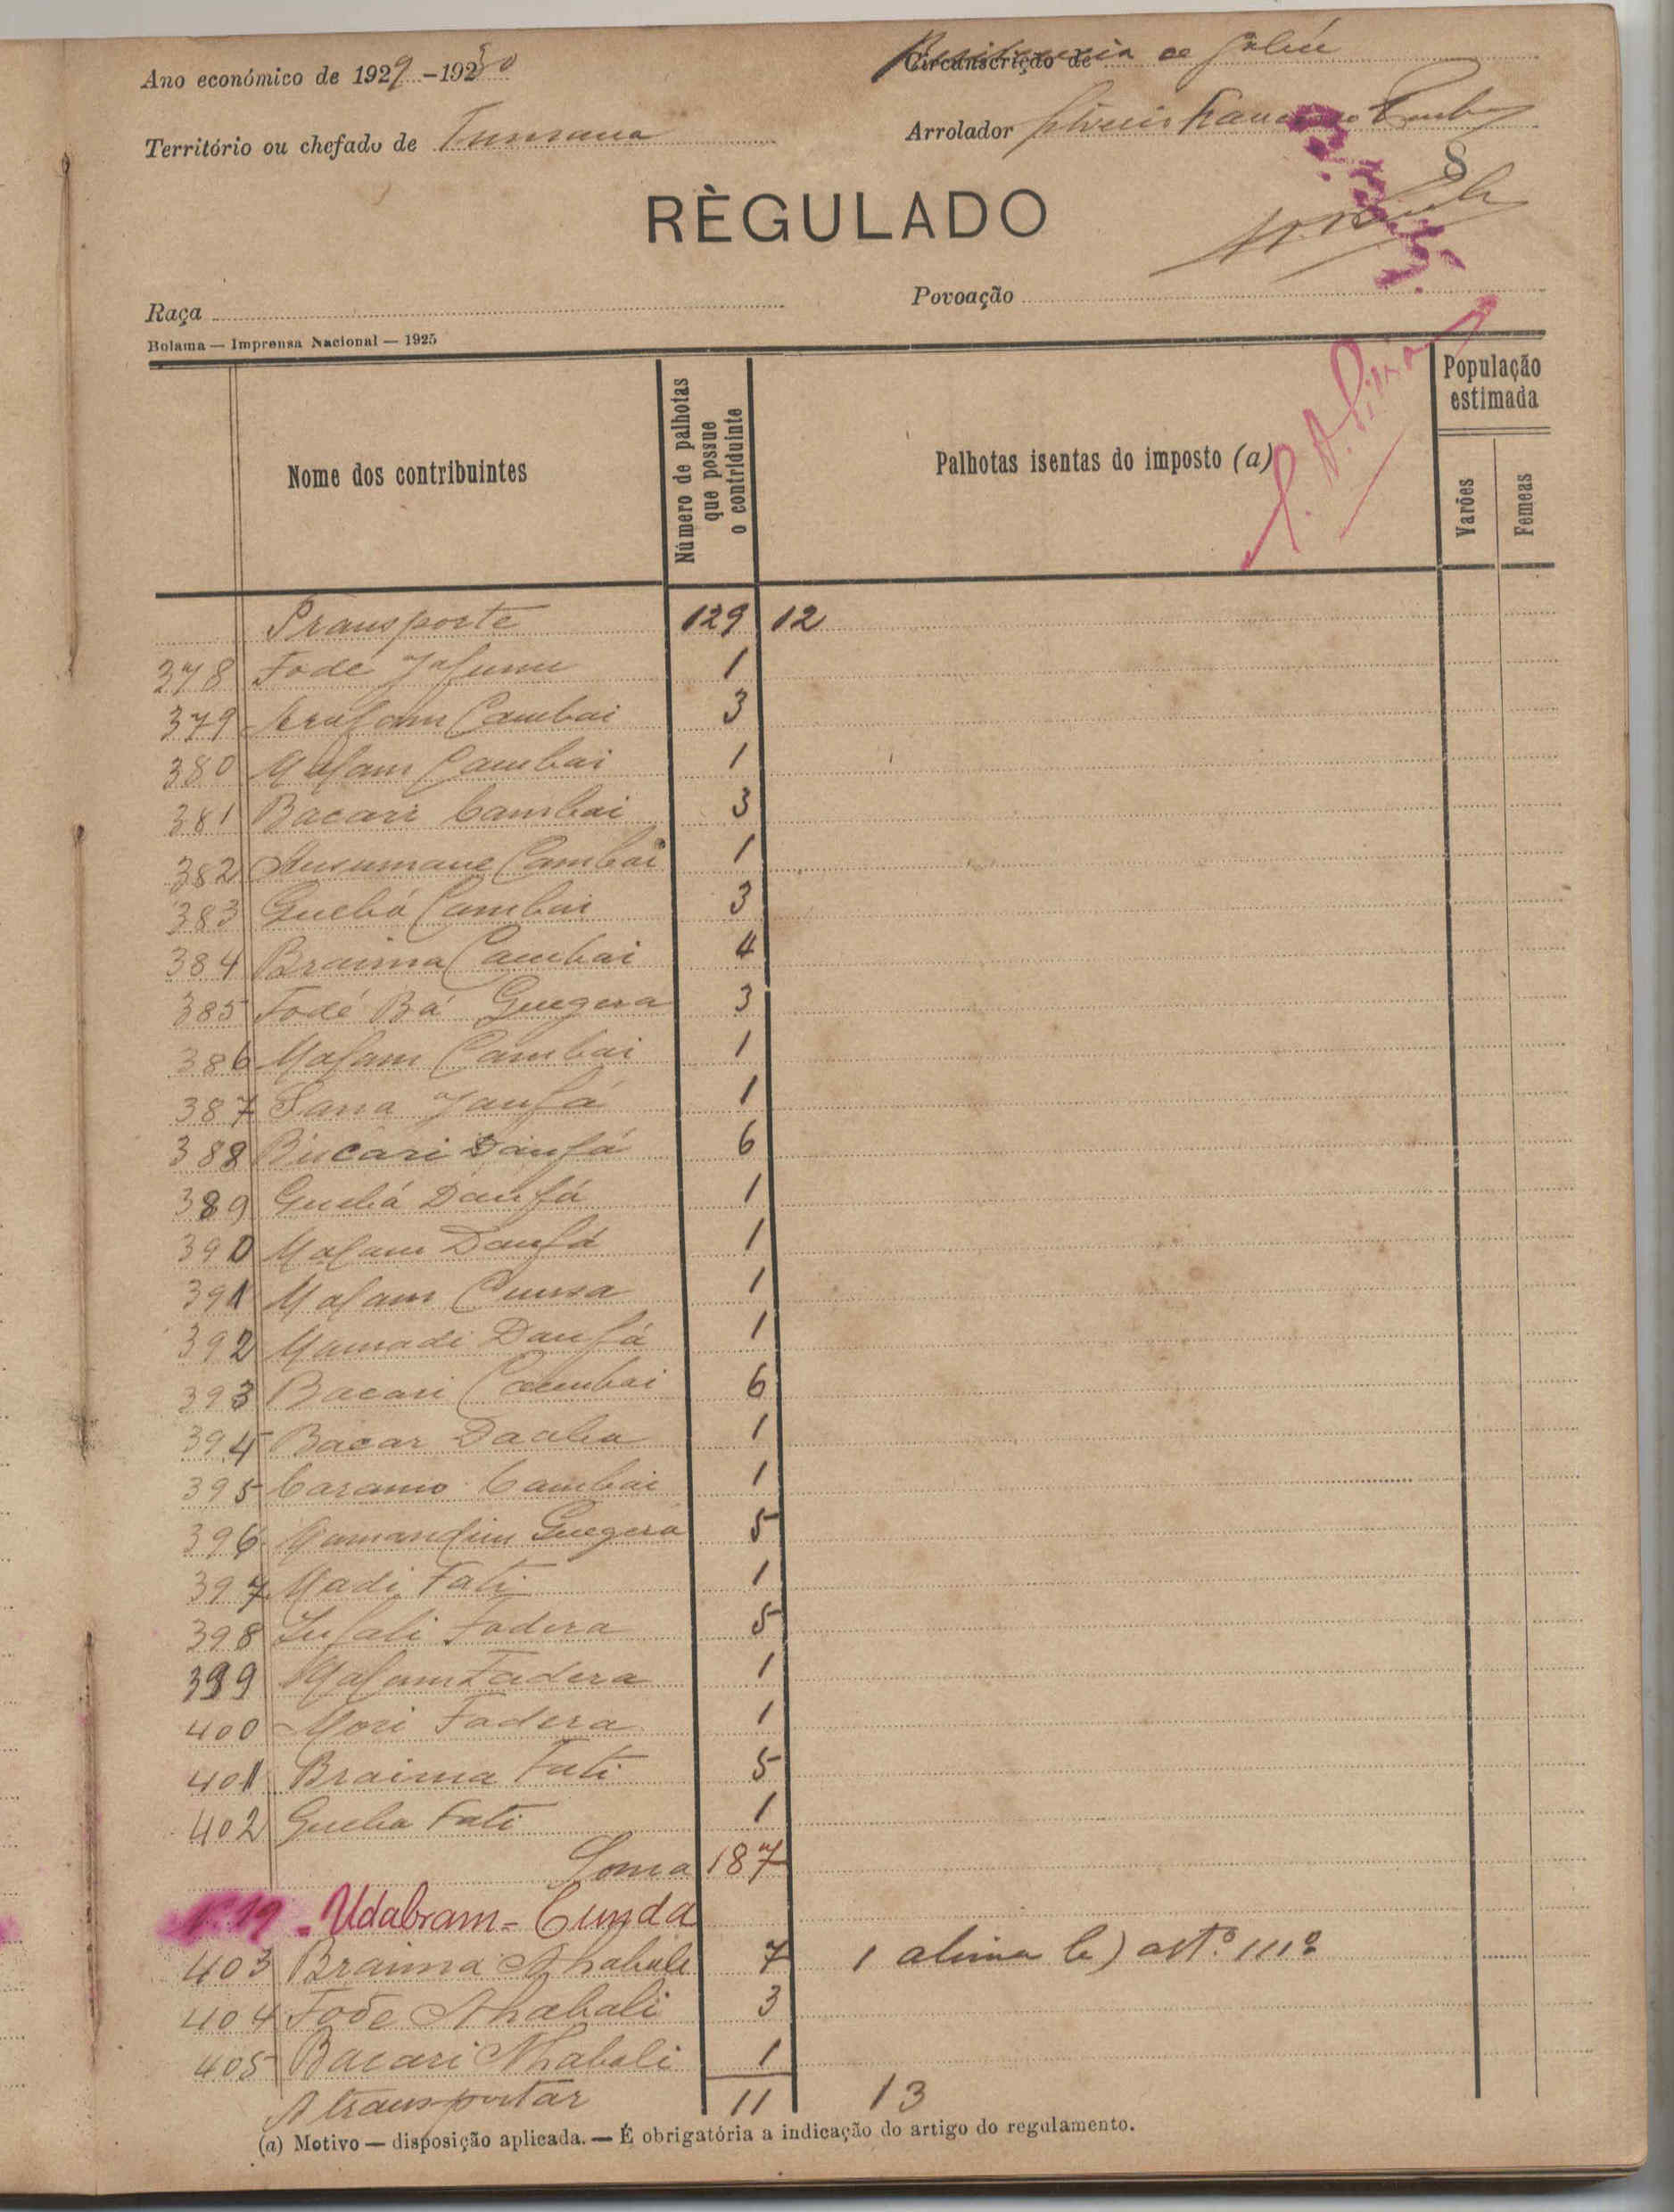 Ano económico de 1929-1930
Circunscrição de
Território ou chefado de Tumana
Arrolador
8
RÈGULADO
Raça
Povoação
Bolama — Imprensa Nacional — 1925
Nome dos contribuintes
Número de palhotas que possue o contriduinte
Palhotas isentas do imposto (a)
População estimada
Varões
Femeas
Transporte 129 12
378 Fodé 1
379 Cambai 3
380 Malam Cambai 1
381 Bacari Cambai 3
382 Cambai 1
383 Quebá Cambai 3
384 Braima Cambai 4
385 Fodé Bá Guegera 3
386 Malam Cambai 1
387 Sana 1
388 Bucari Danfá 6
389 Quebá Danfá 1
390 Malam Danfá 1
391 Malam 1
392 Mamadi Danfá 1
393 Bacari Cambai 6
394 Bacar 1
395 Caramo Cambai 1
396 Guegera 5
397 Madi Fati 1
398 Fadera 5
399 Malam Fadera 1
400 Mori Fadera 1
401 Braima Fati 5
402 Queba Fati 1
Soma 187
Nº 19 - Udabram - Cunda
403 Braima 7 1 alinea b) artº 111º
404 Fode Nhabali 3
405 Bacari Nhabali 1
A transportar 11 13
(a) Motivo — disposição aplicada. — É obrigatória a indicação do artigo do regulamento.